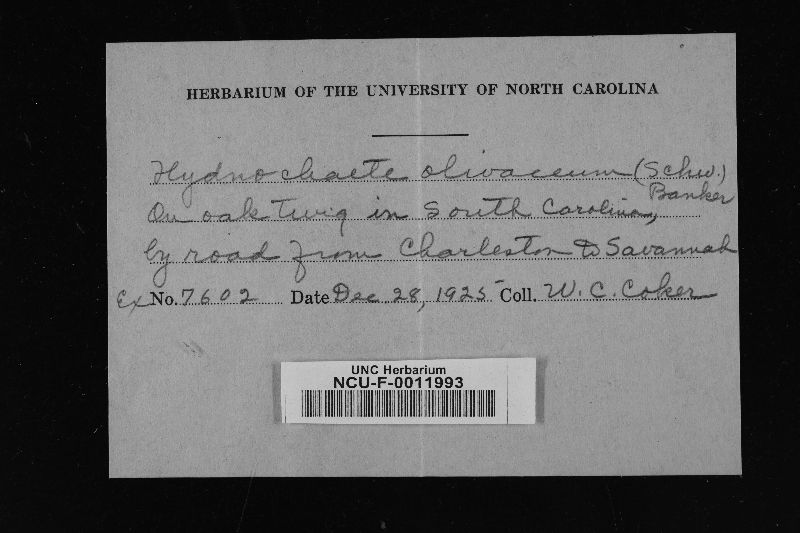 HERBARIUM OF THE UNIVERSITY OF NORTH CAROLINA
Hydnochaete olivaceum (Schw.)
Banker
On oak twig in South Carolina,
by road from Charleston to Savannah
Ex No. 7602 Date Dec 28, 1925 Coll. W. C. Coker
UNC Herbarium
NCU-F-0011993